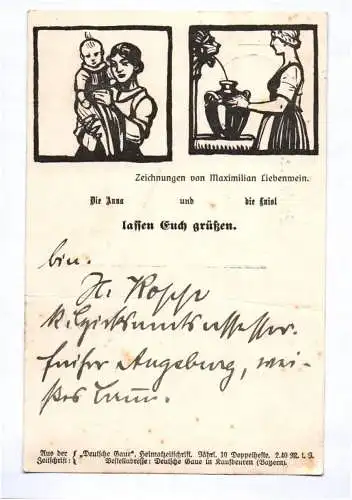 Zeichnungen von Maximilian Liebenwein.
Die Anna und die Luisl
lassen Euch grüßen.
bin.
H. Kopp
k. Bezirksamtsassessor.
früher Augsburg, wei-
ßes Lamm.
Aus der Zeitschrift: „Deutsche Gaue“, Heimatzeitschrift. Jährl. 10 Doppelhefte. 2.40 M. i. J.
Bestelladresse: Deutsche Gaue in Kaufbeuren (Bayern).